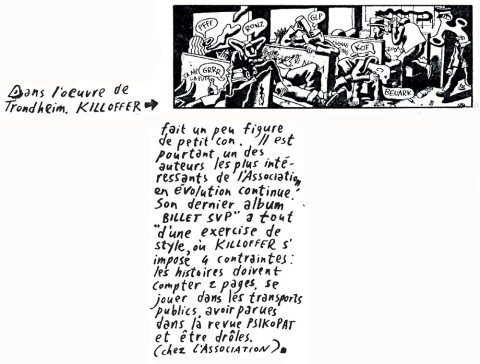 PFFF
RONZ
GLP
GRRR
KOF
BEUARK
Dans l'oeuvre de
Trondheim, KILLOFFER →
fait un peu figure
de petit con. Il est
pourtant un des
auteurs les plus inté-
ressants de l'Association,
en évolution continue.
Son dernier album
"BILLET SVP" a tout
d'une exercise de
style, où KILLOFFER s'
impose 4 contraintes:
les histoires doivent
compter 2 pages, se
jouer dans les transports
publics, avoir parues
dans la revue PSIKOPAT
et être drôles.
(chez L'ASSOCIATION).